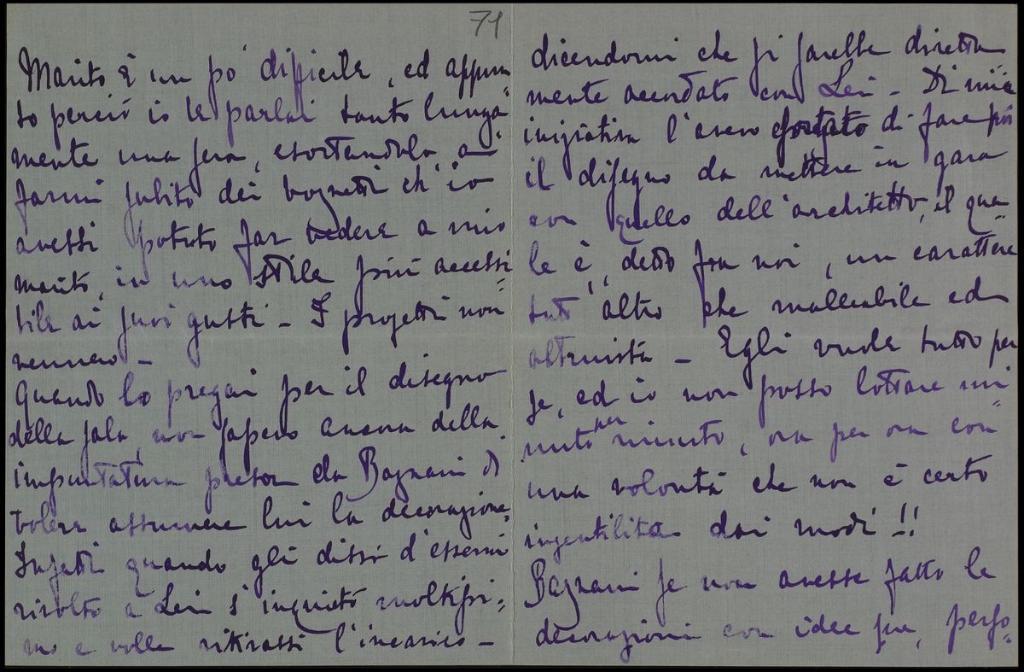 71
Marito è un pò difficile, ed appun
to perciò io le parlai tanto lunga
mente una sera, esortandola a
farmi subito dei bozzetti ch'io
avessi potuto far vedere a mio
marito, in uno stile più accessi
bile ai suoi gusti - I progetti non
vennero -
Quando la pregai per il disegno
della sala, non sapevo ancora della
impuntatura presa da Bazzani di
volere assumere lui la decorazione.
Infatti quando gli dissi d'essermi
rivolto a Lei s'inquietò moltissi-
mo e volle ritirassi l'incarico -
dicendomi che si sarebbe diretta
mente accordato con Lei - Di mia
iniziativa l'avevo esortato di fare poi
il disegno da mettere in gara
con quello dell'architetto, il qua
le è, detto fra noi, un carattere
tutt'altro che malleabile ed
altruista - Egli vuole tutto per
se, ed io non posso lottare mi
nuto per minuto, ora per ora con
una volontà che non è certo
ingentilita dai modi!!
Bazzani se non avesse fatto le
decorazioni con idee sue, perso-